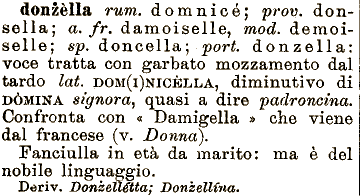 donżèlla rum. domnicé; prov. don-
sella; a. fr. damoiselle, mod. demoi-
selle; sp. doncella; port. donzella:
voce tratta con garbato mozzamento dal
tardo lat. DOM(I)NICÈLLA, diminutivo di
DÒMINA signora, quasi a dire padroncina.
Confronta con « Damigella » che viene
dal francese (v. Donna).
Fanciulla in età da marito: ma è del
nobile linguaggio.
Deriv. Donżellétta; Donżellína.